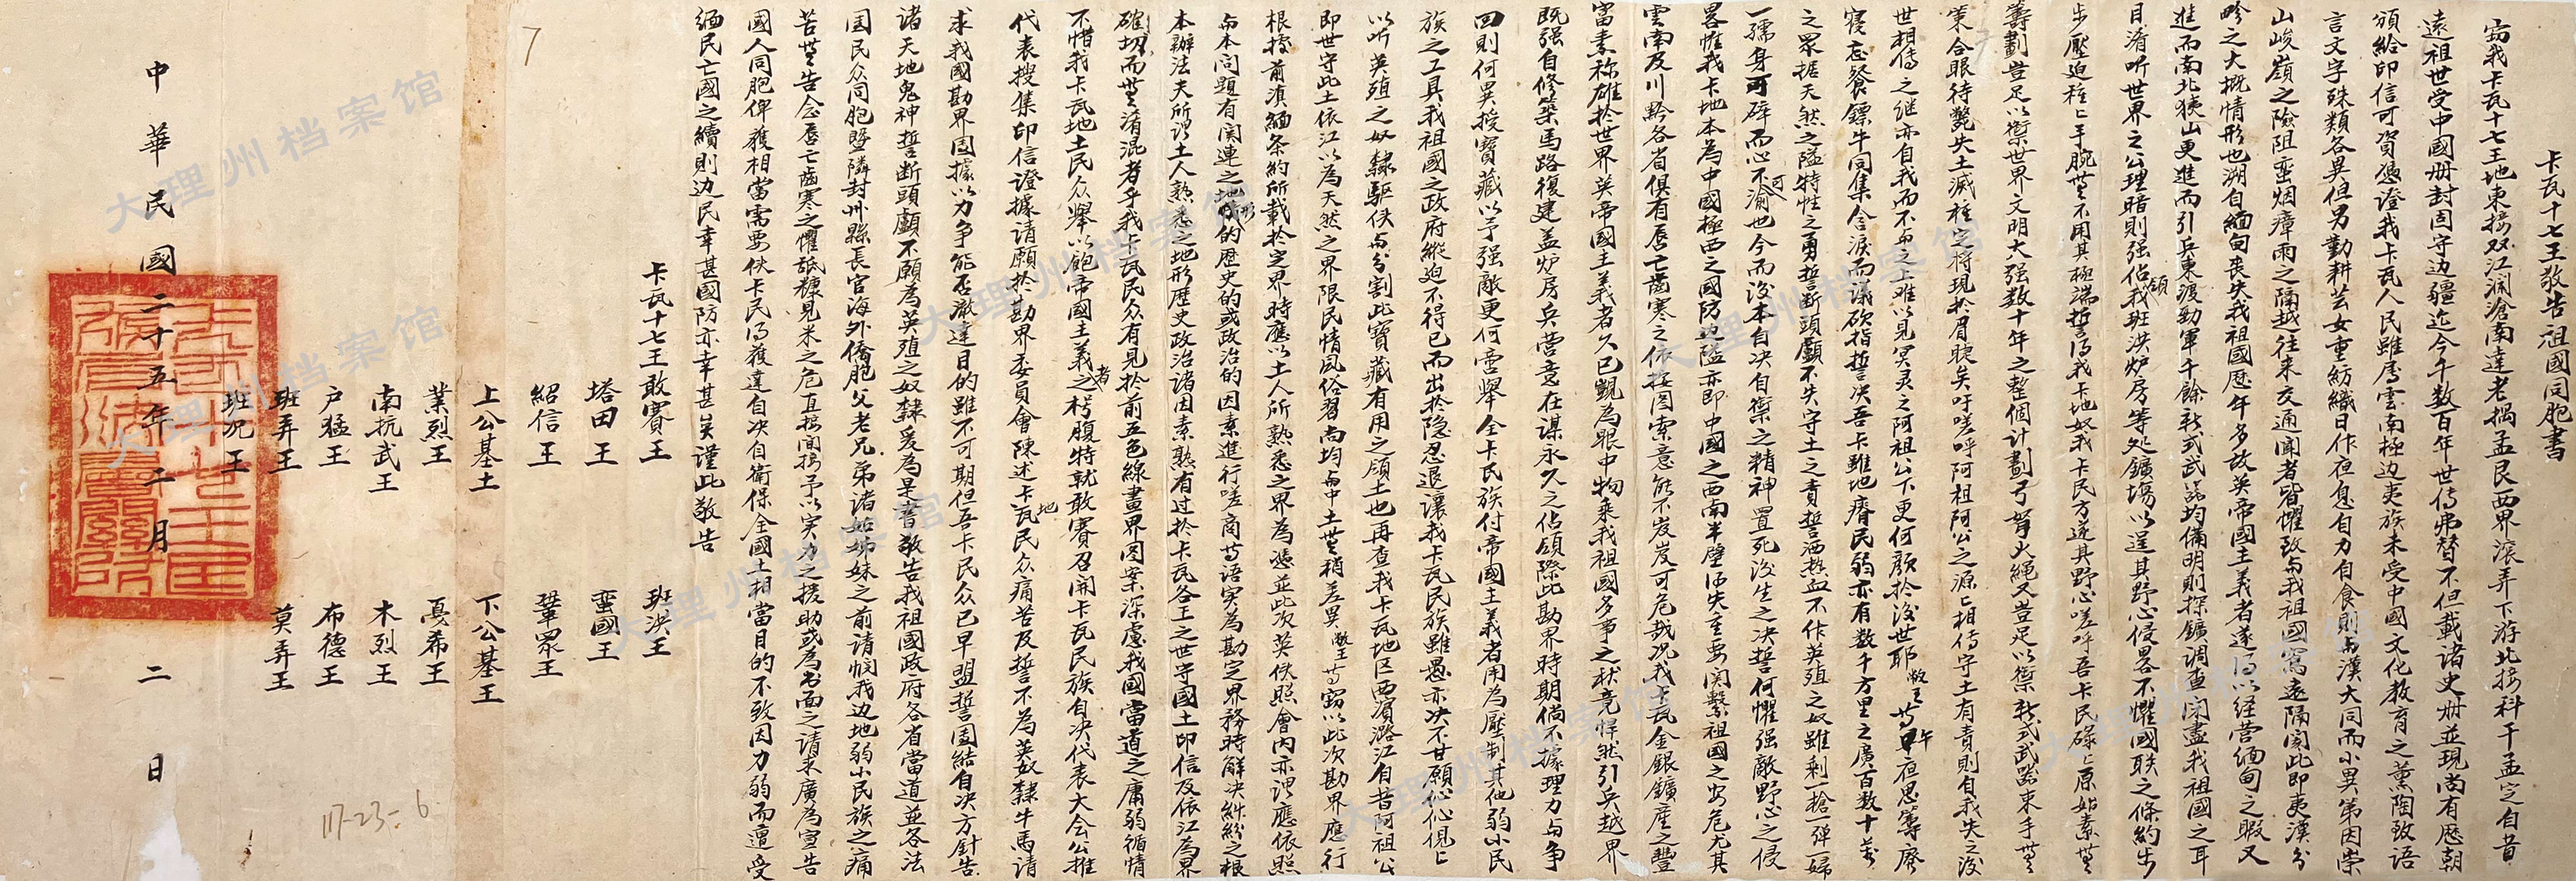 卡瓦十七王敬告祖國同胞書
竊我卡瓦十七王地東接双江瀾滄南達老撾孟艮西界滾弄下游北接科干孟定自昔
遠祖世受中國册封固守边疆迄今千数百年世傳弗替不但載諸史册並現尚有歷朝
頒給印信可資憑證我卡瓦人民雖屬雲南極边夷族未受中國文化教育之薰陶致語
言文字殊類各異但男勤耕芸女重紡織日作夜息自力自食則与漢大同而小異第因崇
山峻嶺之險阻蛮烟瘴雨之隔越往来交通聞者皆懼致与我祖國寫遠隔閡此即夷漢分
畛之大概情形也溯自緬甸喪失我祖國歷年多故英帝國主義者遂得以経営緬甸之暇又
進而南北狹山更進而引兵東渡勁軍千餘新式武器均備明則採鑛調查閉盡我祖國之耳
目淆听世界之公理暗則强佔領我班洪炉房等処鑛塲以逞其野心侵畧不懼國联之條約步
步壓迫種々手腕莫不用其極端哲得我卡地奴我卡民方遂其野心嗟呼吾卡民碌々原始素無
籌劃豈足以禦世界文明大强数十年之整個計劃弓弩火繩又豈足以禦新式武器束手無
策合眼待斃失土滅種定将現於眉睫矣吁嗟呼阿祖阿公之源々相傳守土有責則自我失之後
世相傳之继亦自我而不与之上难以見冥灵之阿祖公下更何顏於後世耶敝王等早午夜思籌廢
寝忘餐鏢牛同集含淚而議砍指誓决吾卡雖地瘠民弱亦有数千方里之廣百数十萬
之眾据天然之隘特性之勇誓断頭顱不失守土之責誓洒热血不作英殖之奴雖剩一槍一弹婦
一孺身可碎而心不可渝也今而後本自决自禦之精神置死後生之决誓何懼强敵野心之侵
畧惟我卡地本為中國極西之國防边隘亦即中國之西南半壁得失至要関繫祖國之安危尤其
雲南及川黔各省俱有唇亡齒寒之依按图索意能不岌岌可危哉况我卡瓦金銀鑛産之豐
富素称雄於世界英帝國主義者久已覬為眼中物乘我祖國多事之秋竟悍然引兵越界
既强自修築馬路復建盖炉房兵营意在谋永久之佔領際此勘界時期倘不據理力与争
回則何異授寶藏以予强敵更何啻舉全卡民族付帝國主義者用為壓制其他弱小民
族之工具我祖國之政府縱迫不得已而出於隐忍退讓我卡瓦民族雖愚亦决不甘願伈伈俔々
以听英殖之奴隸驅使与分割此寶藏有用之領土也再查我卡瓦地区西濱潞江自昔阿祖公
即世守此土依江以為天然之界限民情風俗習尚均与中土無稍差異敝王等竊以此次勘界應行
根據前滇緬条約所載於定界時應以土人所熟悉之界為憑並此次英使照會内亦谓應依照
与本问題有関連之地形的歴史的或政治的因素進行嗟商等语実為勘定界務時解决糾紛之根
本辦法夫所谓土人熟悉之地形歴史政治诸因素熟有过於卡瓦各王之世守國土印信及依江為界
確切而無淆混者乎我卡瓦民众有見於前五色線畫界図案深慮我國當道之庸弱循情
不惜我卡瓦地土民众舉以飽帝國主義者之枵腹特就敢賽召開卡瓦民族自决代表大会公推
代表搜集印信證據请願於勘界委員會陳述卡瓦地民众痛苦及誓不為英奴隸牛馬请
求我國勘界固據以力争能否澈達目的雖不可期但吾卡民众已早盟誓團結自决方針告
诸天地鬼神誓断頭顱不願為英殖之奴隸爰為是書敬告我祖國政府各省當道並各法
国民众同胞暨隣封州縣長官海外僑胞父老兄弟诸姑姊妹之前请悯我边地弱小民族之痛
苦無告念唇亡齒寒之懼舐糠見米之危直接间接予以実力之援助或為书面之请求廣為宣告
國人同胞俾獲相當需要使卡民得獲達自决自衛保全國土相當目的不致因力弱而遭受
缅民亡國之續則边民幸甚國防亦幸甚矣谨此敬告
卡瓦十七王敢賽王 班洪王
塔田王 蛮國王
紹信王 鞏眾王
上公基土 下公基王
業烈王 戛希王
南抗武王 木烈王
户猛王 布德王
班弄王 莫弄王
班况王
中華民國二十五年二月二日
7
117-23-6
大理州档案馆